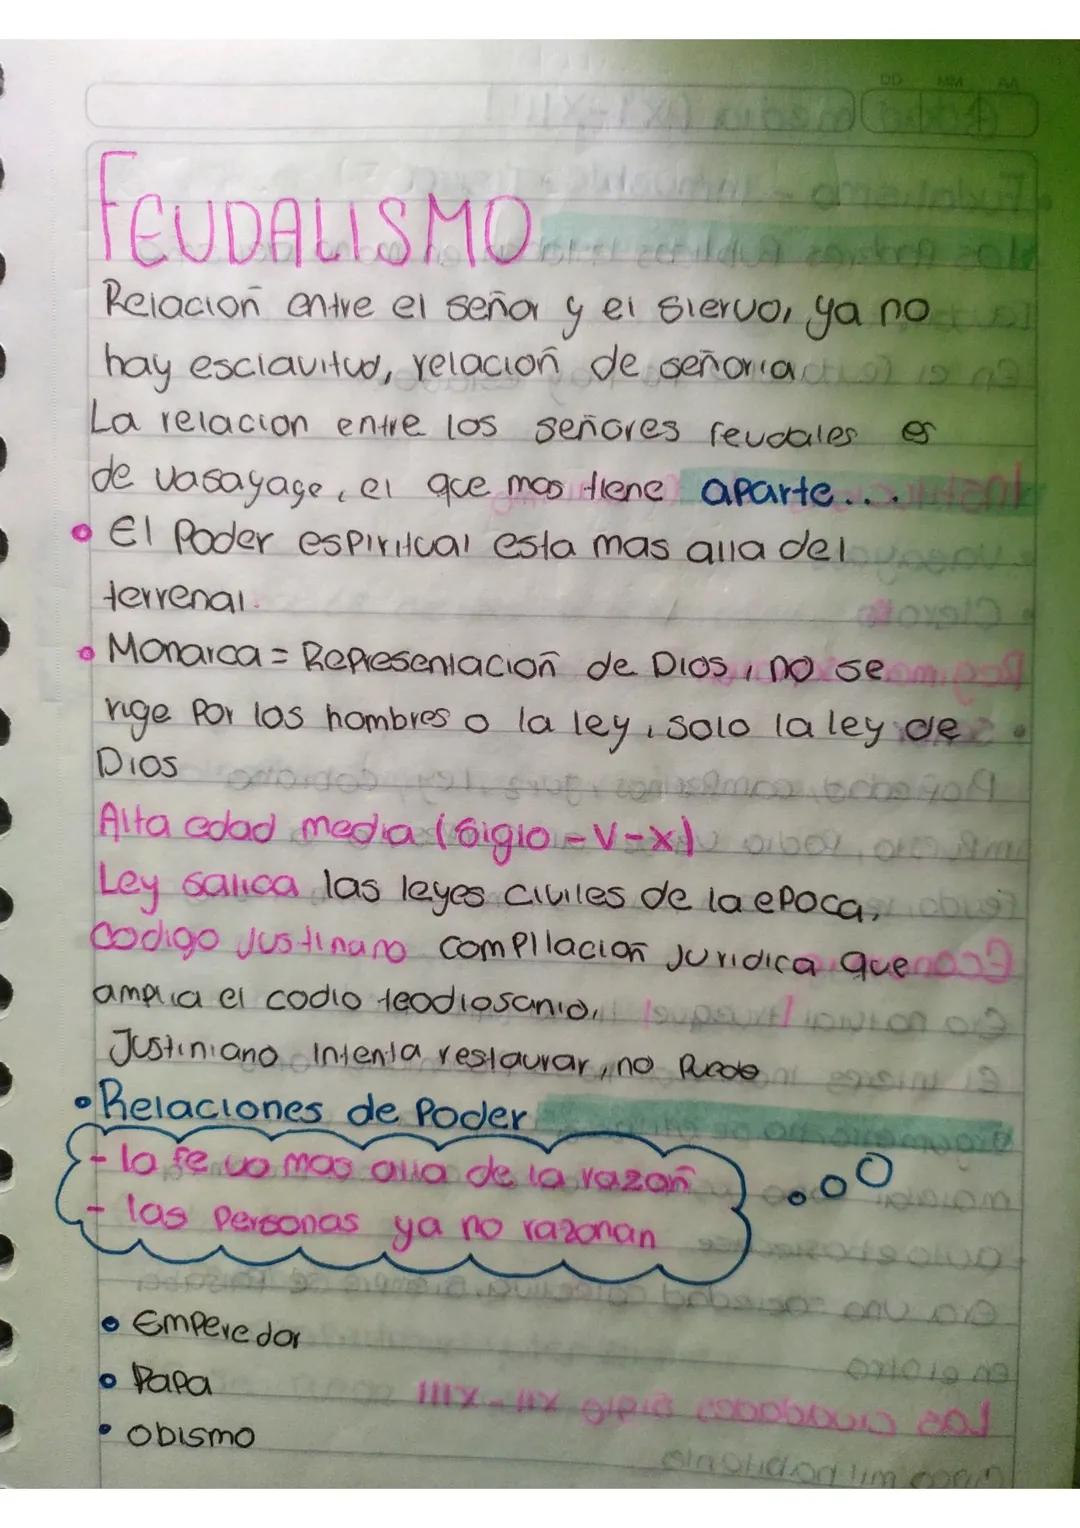 FEUDALISMO
Relacioñ entre el señor y el siervo, ya no
hay esclavitud, relacioñ de señoria
La relacion entre los señores feudales es
de vasayage, el que mas tiene aparte...
• El Poder espiritual esta mas alla del
terrenal.
• Monarca = Representacioñ de Dios, no se
rige por los hombres o la ley, solo la ley de
Dios
Alta edad media (siglo - V - X)
Ley salica las leyes civiles de la epoca,
codigo Justinano compilacioñ Juridica que
amplia el codio teodiosanio,
Justiniano intenta restaurar, no puede
• Relaciones de Poder
- la fe va mas alla de la razoñ
- las personas ya no razonan
• Emperedor
• Papa
• obismo